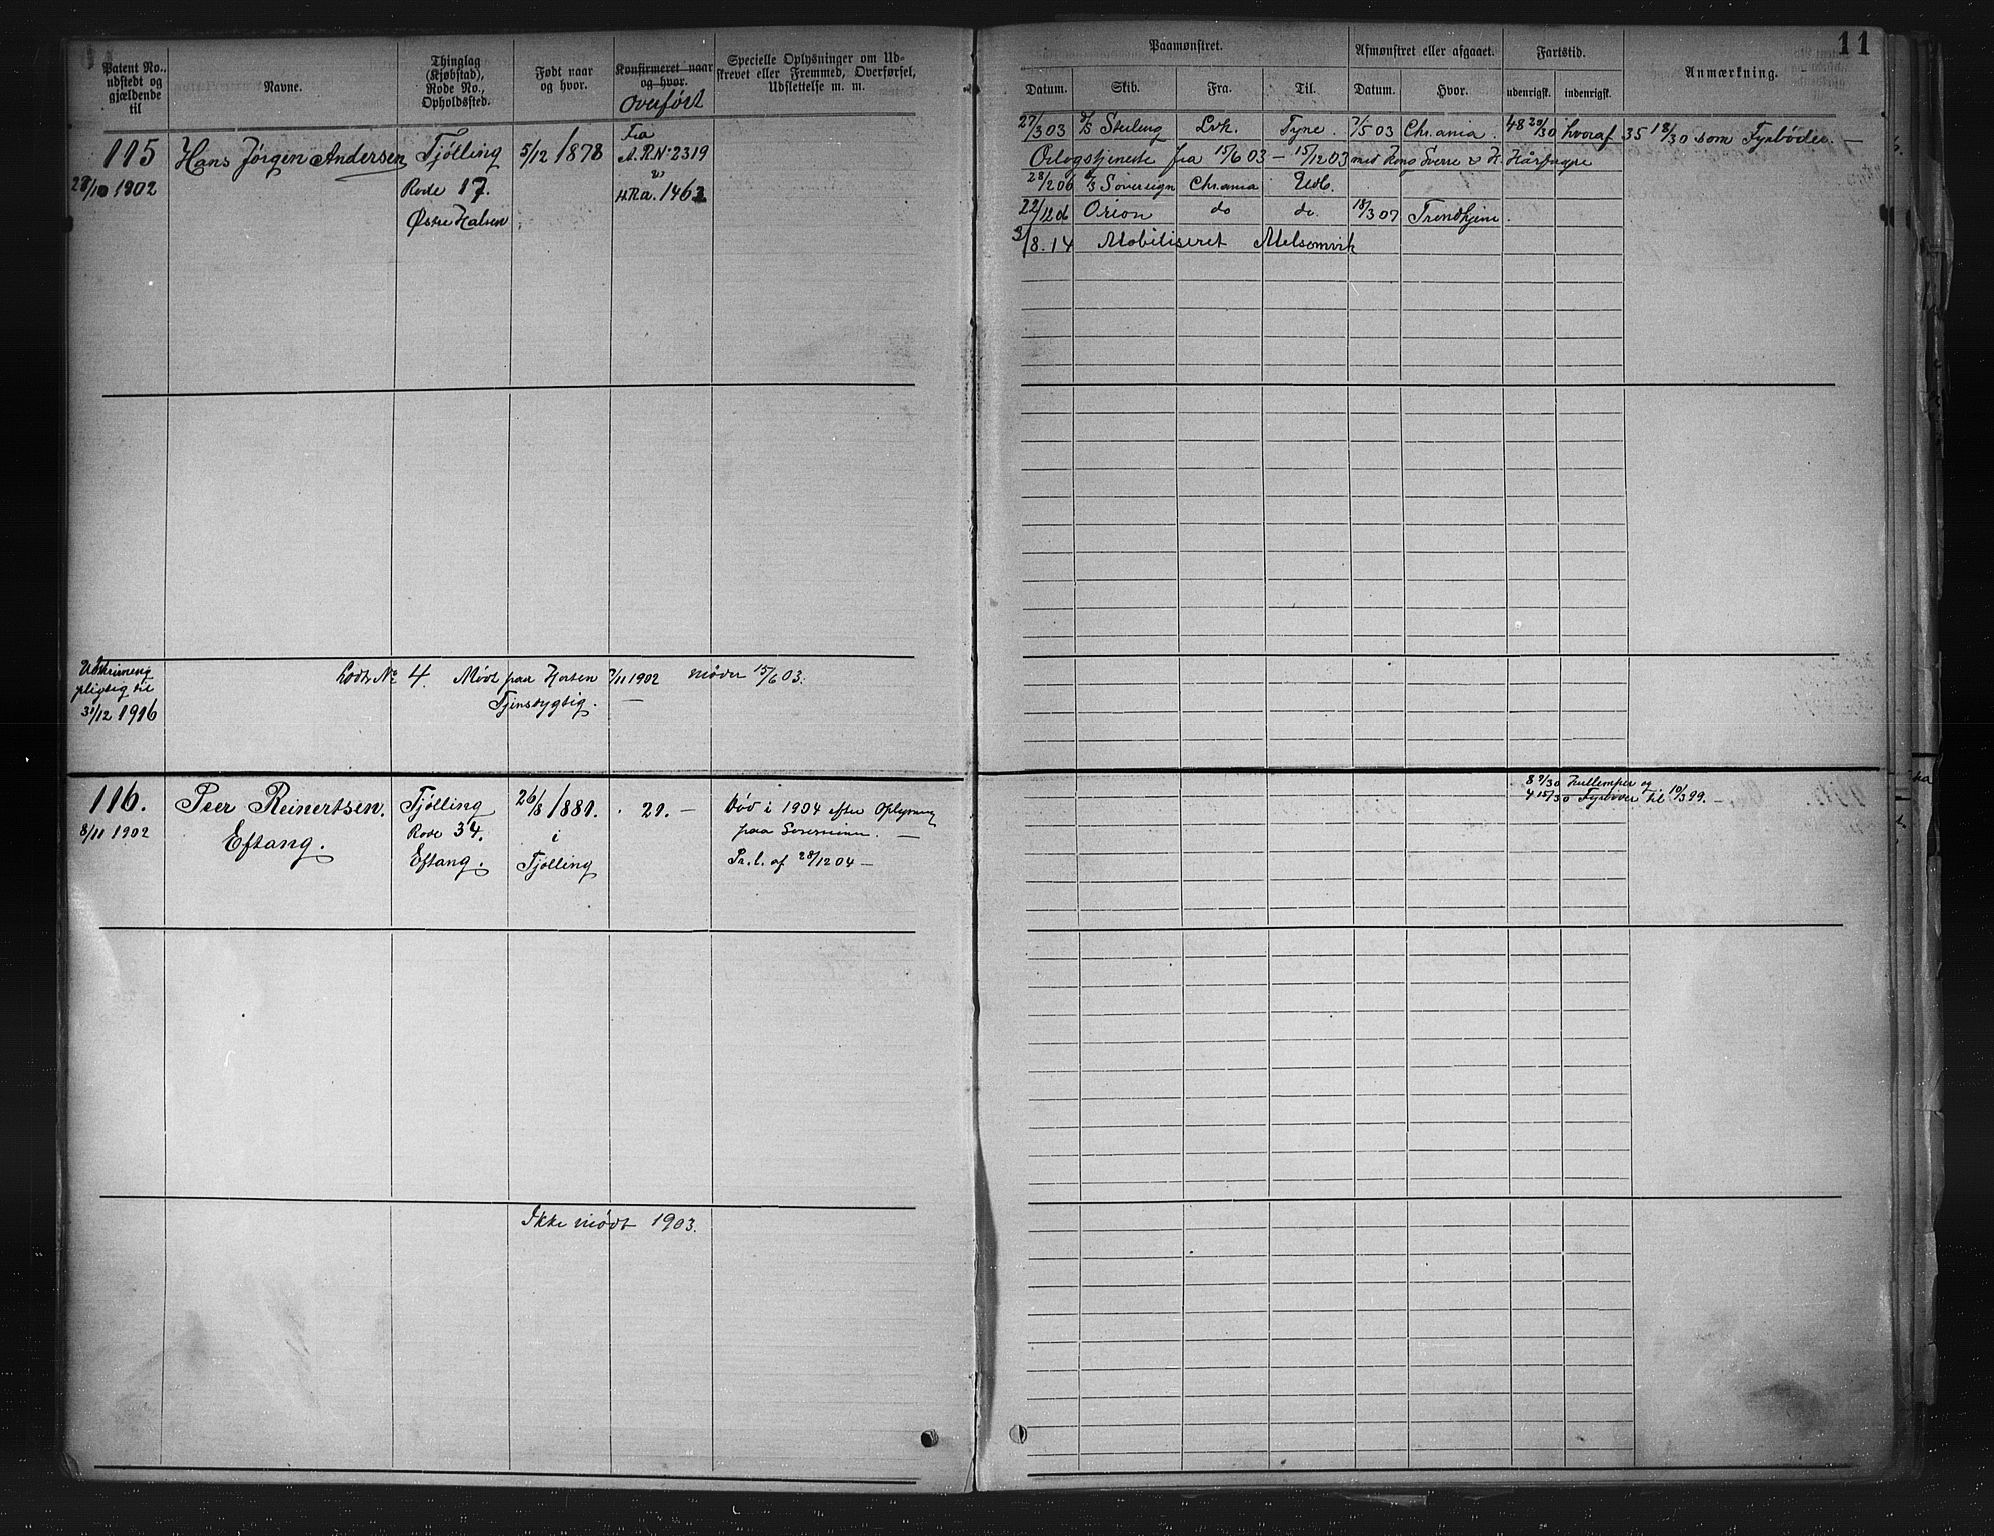 Patent No., udstedt og gjældende til
Navne.
Thinglag (Kjøbstad), Rode No., Opholdssted.
Født naar og hvor.
Konfirmeret naar og hvor.
Overført
Specielle Oplysninger om Udskrevet eller Fremmed, Overførsel, Udslettelse m. m.
115
28/10 1902
Hans Jørgen Andersen
Tjølling
Rode 17.
Østre Halsen
5/12 1878
Fra
A.R.No 2319
H.Ra. 1462
Udskrivning
pligtig til
31/12 1916
Lodtr No 4. Mødt paa Horten 7/11 1902 møder 15/6 03.
Tjenstdygtig. —
116.
8/11 1902
Peer Reinertsen.
Eftang.
Tjølling
Rode 34.
Eftang.
26/8 1881.
i
Tjølling
Død i 1904 efter Oplysning
paa Sessionen. —
Pr. l. af 28/12 04 —
Ikke mødt 1903.
11
Paamønstret.
Afmønstret eller afgaaet.
Fartstid.
Anmærkning.
Datum.
Skib.
Fra.
Til.
Datum.
Hvor.
udenrigsk.
indenrigsk.
27/3 03 D/S Sterling Lvk. Tyne. 7/5 03 Chr.ania. 48 20/30 hvoraf 35 18/30 som Fyrbøder. —
Orlogstjeneste fra 15/6 03 — 15/12 03 med Kong Sverre & H. Hårfagre
28/2 06 D/S Sovereign Chr.ania Udl.
22/12 06 Orion do do. 18/3 07 Trondhjem.
3/8. 14 Mobiliseret Melsomvik
8 9/30 Kullemper og
4 15/30 Fyrbøder til 10/3 99. —